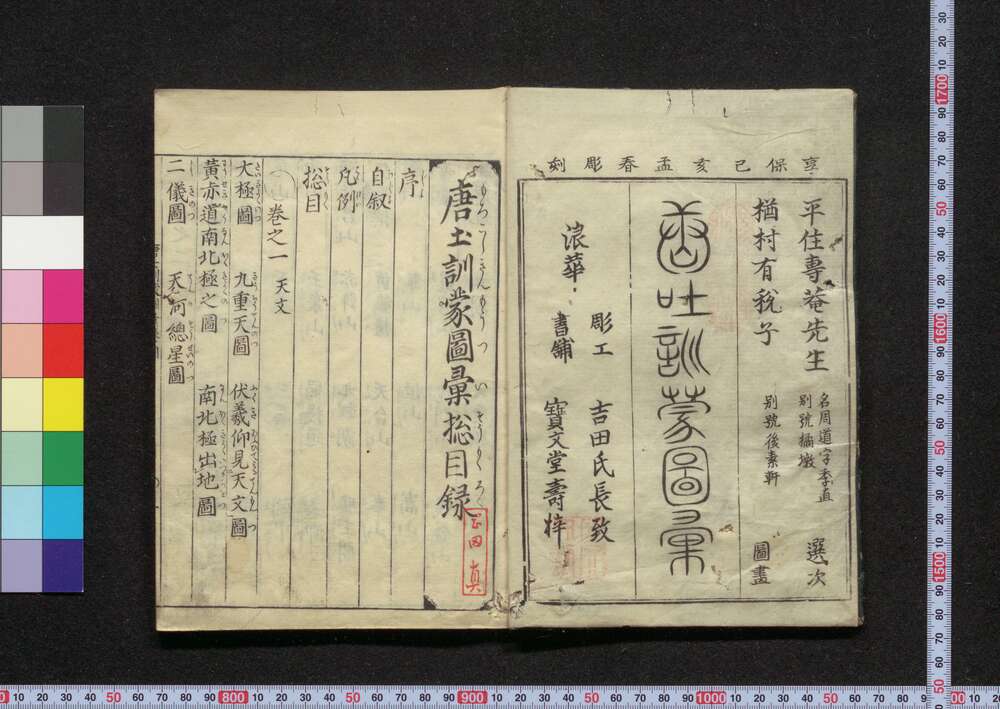 享保己亥孟春彫刻
平住專菴先生 名周道字季直 別號橘墩 選次
楢村有稅子 別號後素軒 圖畫
唐土訓蒙圖彙
彫工 吉田氏長致
浪華 書舗 寶文堂壽梓
唐土訓蒙圖彙總目録
序
自叙
凡例
総目
卷之一 天文
大極圖 九重天圖 伏羲仰見天文圖
黃赤道南北極之圖 南北極出地圖
二儀圖 天河總星圖